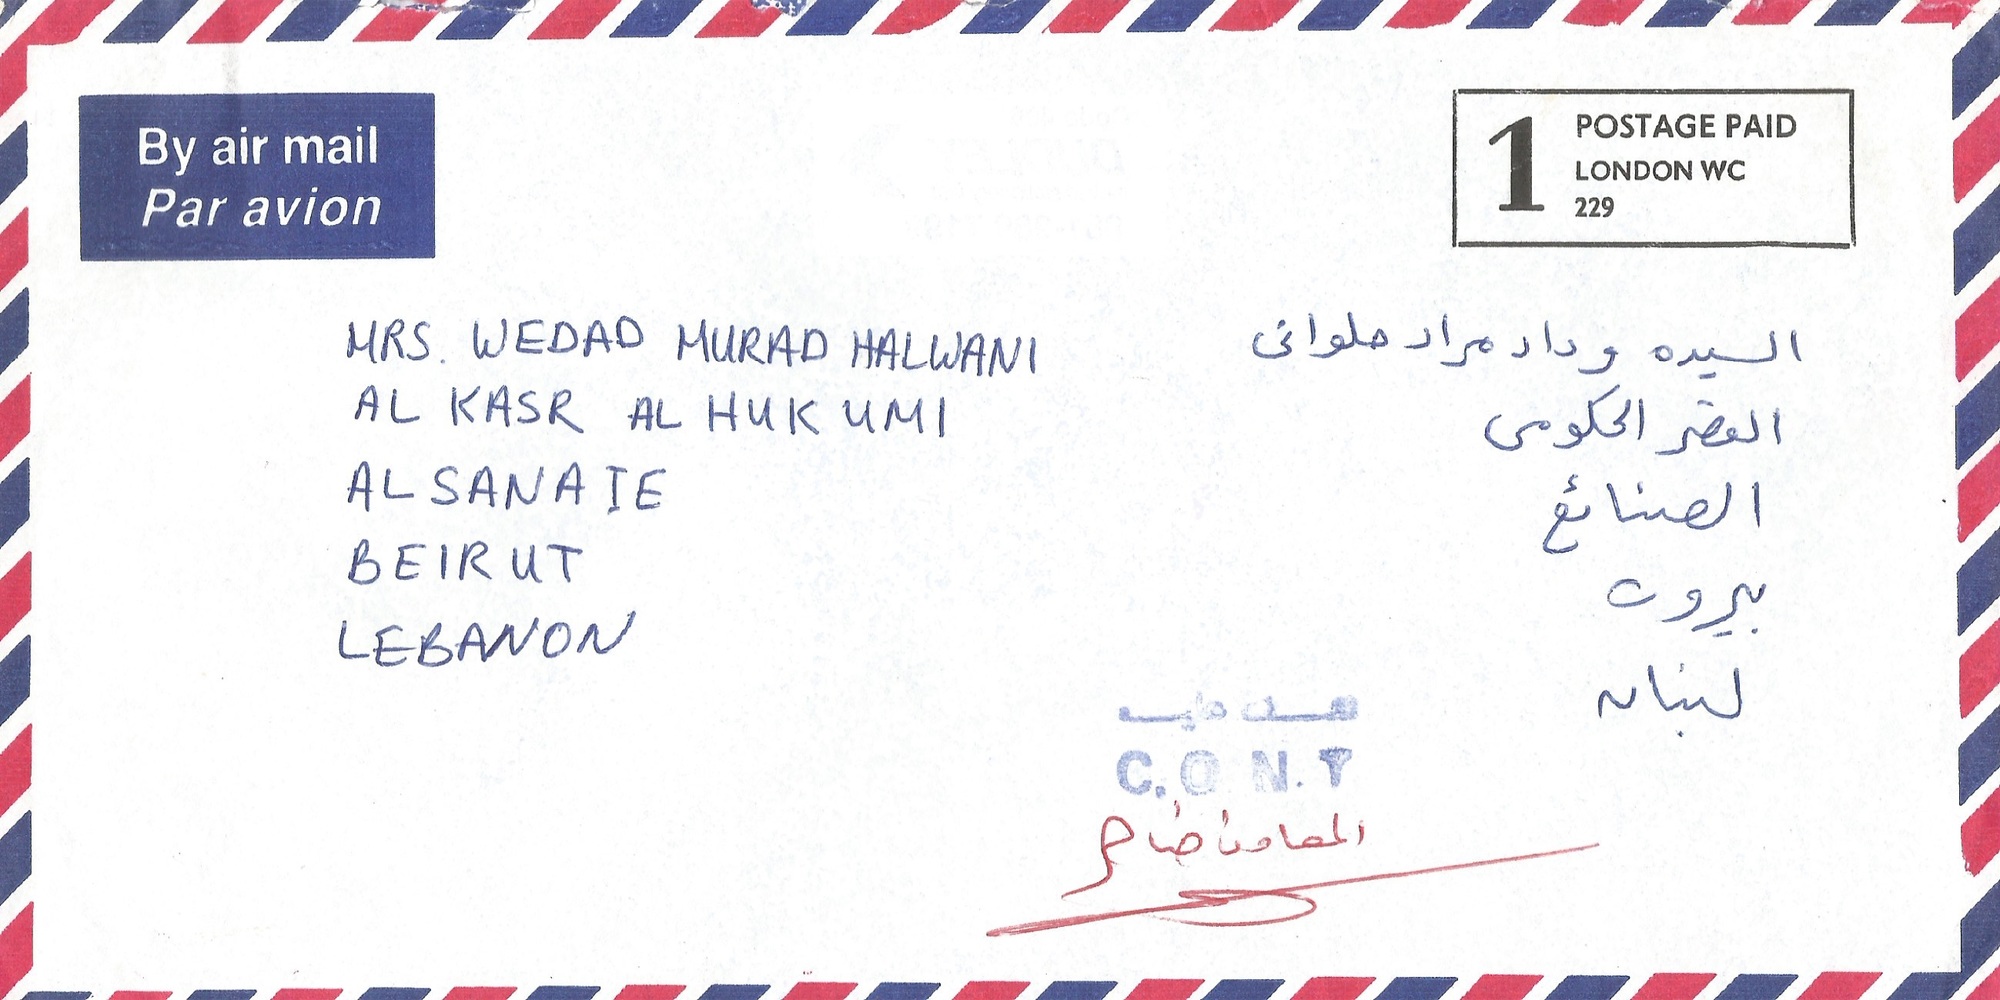 By air mail
Par avion
1 POSTAGE PAID
LONDON WC
229
MRS. WEDAD MURAD HALWANI
AL KASR AL HUKUMI
ALSANAIE
BEIRUT
LEBANON
السيده وداد مراد حلوانى
القصر الحكومى
الصنائع
بيروت
لبنان
C.O.N.T
المعاون